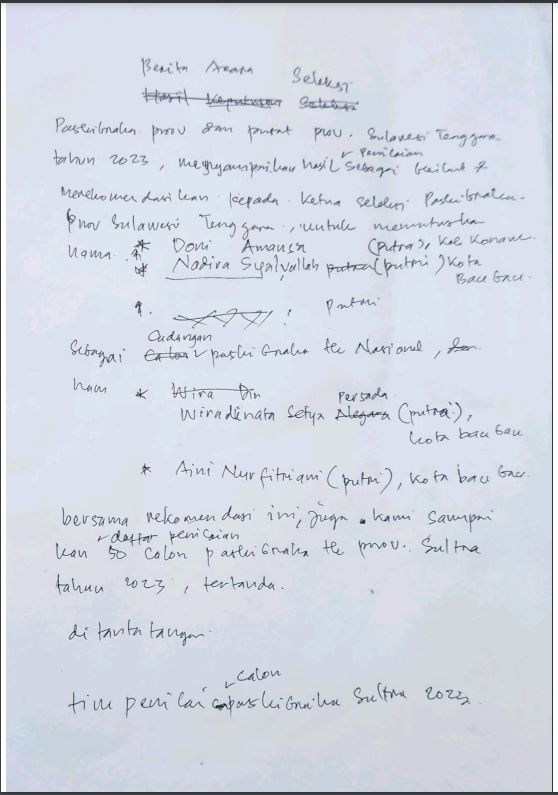 Berita Acara Seleksi
Hasil Keputusan Seleksi
Paskibraka prov dan pusat prov. Sulawesi Tenggara
tahun 2023, menyampaikan hasil penilaian sebagai berikut &
merekomendasikan kepada ketua seleksi Paskibraka
prov Sulawesi Tenggara, untuk memutuskan
nama : * Doni Amansa (putra), kab Konawe
* Nadira Syalvallah putra (putri) kota
Bau bau.
putri
Sebagai calon Cadangan paskibraka tk Nasional, dan
nam * Wira Din
Wiradinata Setya Negara Persada (putra),
kota bau bau
* Aini Nurfitriani (putri), kota bau bau.
bersama rekomendasi ini, juga kami sampai
kan daftar penilaian 50 calon paskibraka tk prov. Sultra
tahun 2023, tertanda.
ditantatangan.
tim penilai calon paskibraka Sultra 2023.